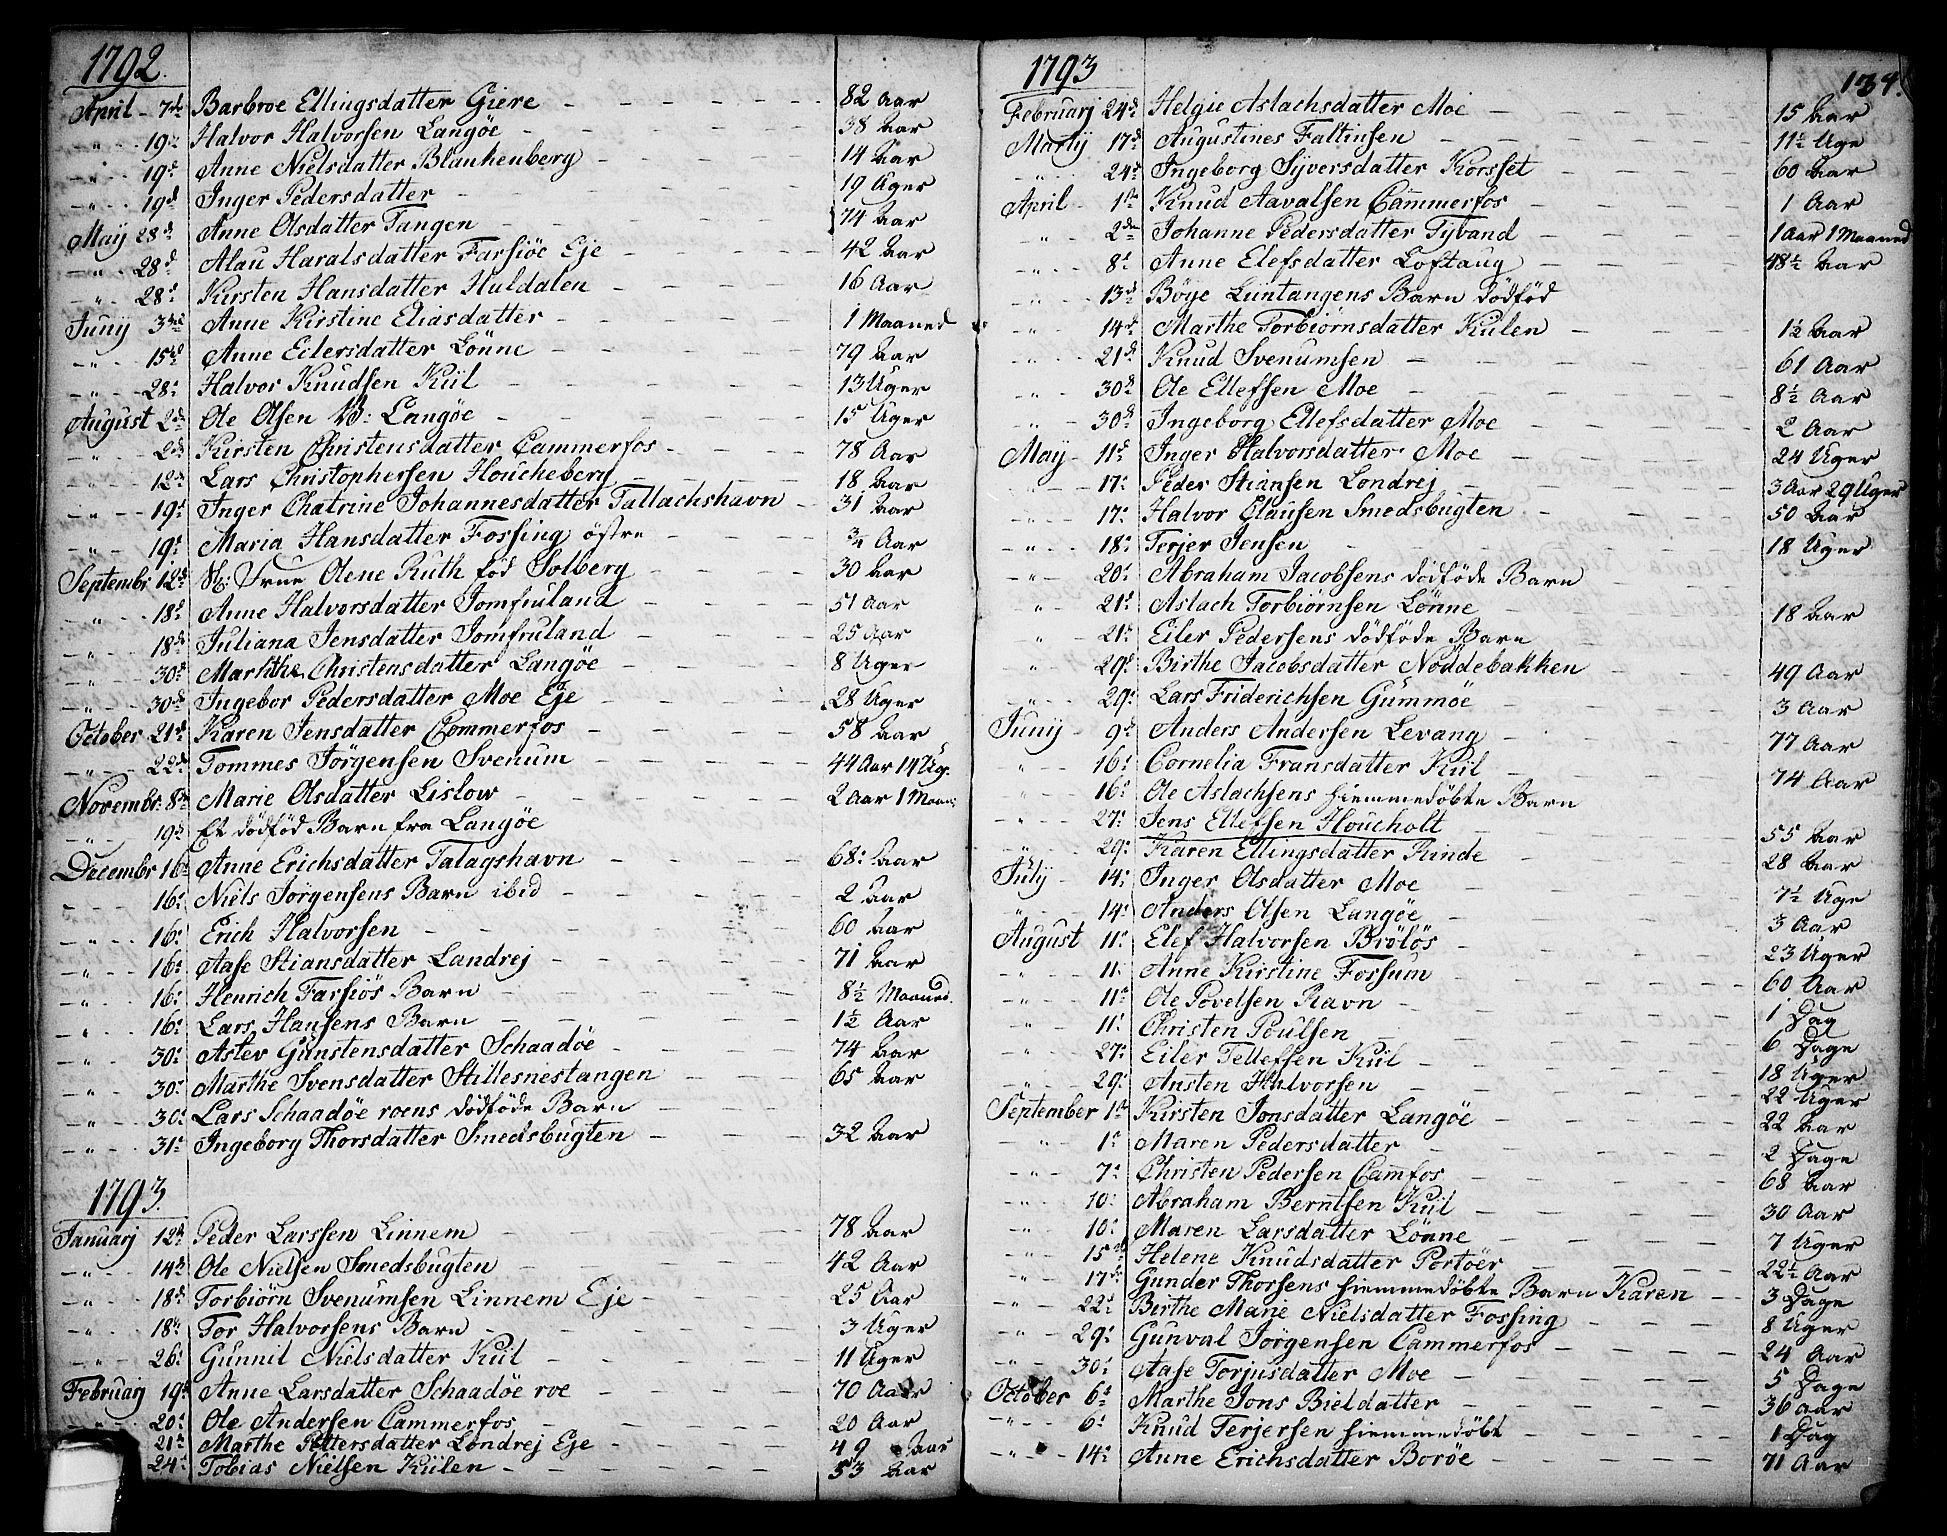 1792.
April - 7de Barbroe Ellingsdatter Giere 82 Aar
19de Halvor Halvorsen Langöe 38 Aar
19de Anne Nielsdatter Blankenberg 14 Aar
19de Inger Pedersdatter 19 Uger
May 28de Anne Olsdatter Tangen 74 Aar
28de Alau Haralsdatter Farsiöe Eje 42 Aar
28de Kirsten Hansdatter Huldalen 16 Aar
Juny 3de Anne Kirstine Eliasdatter 1 Maaned
15de Anne Eilersdatter Lönne 79 Aar
28de Halvor Knudsen Kiil 13 Uger
August 2de Ole Olsen B: Langöe 15 Uger
2de Kirsten Christensdatter Cammerfos 78 Aar
12de Lars Christophersen Houcheberg 18 Aar
19de Inger Chatrine Johannesdatter Tallachshavn 31 Aar
19de Maria Hansdatter Fossing östre ¾ Aar
Septembr 12de Frue Olene Ruth föd Solberg 30 Aar
18de Anne Halvorsdatter Jomfruland 51 Aar
18de Juliana Jensdatter Jomfruland 25 Aar
30de Marthe Christensdatter Langöe 8 Uger
30de Ingebor Pedersdatter Moe Eje 28 Uger
October 21de Karen Jensdatter Commerfos 58 Aar
22de Tommes Jörgensen Svenum 44 Aar 14 Ug.
Novembr. 8de Marie Olsdatter Lislow 2 Aar 1 Maan:
19de Et dödföd Barn fra Langöe
Decembr 16de Anne Erichsdatter Talagshavn 68: Aar
16: Niels Jörgensens Barn ibid 2 Aar
16: Erich Halvorsen 60 Aar
16: Aase Stiansdatter Landrej 71 Aar
16: Henrich Farsiös Barn 8½ Maaned.
16: Lars Hansens Barn 1½ Aar
30: Astev Gunstensdatter Schaadöe 74 Aar
30: Marthe Svensdatter Stillesnestangen 65 Aar
30: Lars Schaadöe roens dödföde Barn
31: Ingeborg Thorsdatter Smedsbugten 32 Aar
1793.
Januarj 12de Peder Larssen Linnem 78 Aar
14de Ole Nielsen Smedsbugten 42 Aar
18de Torbiörn Svenumsen Linnem Eje 25 Aar
18de Tor Halvorsens Barn 3 Uger
26: Gunnil Nielsdatter Kiil 11 Uger
Februarj 19de Anne Larsdatter Schaadöe roe 70 Aar
20: Ole Andersen Cammerfos 20 Aar
21de Marthe Pettersdatter Londrej Eje 49 Aar
24: Tobias Nielsen Kiilen 53 Aar
1793
134.
Februarj 24de Helgie Aslachsdatter Moe 15 Aar
Martj 17de Augustines Faltinsen 11½ Uge
24de Ingeborg Syversdatter Korsset 60 Aar
April 1ste Knud Aavalsen Cammerfos 1 Aar
2den Johanne Pedersdatter Tyvand 1 Aar 1 Maaned
8de Anne Elefsdatter Loftaug 48½ Aar
13de Böye Luntangens Barn dödföd
14de Marthe Torbiörnsdatter Kiilen 1½ Aar
21de Knud Svenumsen 61 Aar
30de Ole Ellefsen Moe 8½ Aar
30de Ingeborg Ellefsdatter Moe 2 Aar
May 11de Inger Halvorsdatter Moe 24 Uger
17: Peder Stiansen Londrej 3 Aar 29 Uger
17: Halvor Clausen Smedsbugten 50 Aar
18: Terjer Jensen 18 Uger
20: Abraham Jacobsens dödföde Barn
21: Aslach Torbiörnsen Lönne 18 Aar
21: Eiler Pedersens dödföde Barn
29: Birthe Jacobsdatter Nöddebakken 49 Aar
29: Lars Friderichsen Gummöe 3 Aar
Juny 9de Anders Andersen Levang 77 Aar
16: Cornelia Fransdatter Kiil 74 Aar
16: Ole Aslachsens hiemmedöbte Barn
27: Jens Ellefsen Houcholt 55 Aar
29: Karen Ellingsdatter Rinde 28 Aar
July 14: Inger Olsdatter Moe 7½ Uge
14: Anders Olsen Langöe 3 Aar
August 11: Elef Halvorsen Brölös 23 Uger
11: Anne Kirstine Fossum 60 Aar
11: Ole Povelsen Ravn 1 Dag
11: Christen Poulsen 6 Dage
27: Eiler Tellefsen Kiil 18 Uger
29: Ansten Halvorsen 22 Uger
September 1ste Kirsten Jonsdatter Langöe 22 Aar
1: Maren Pedersdatter 2 Dage
7: Christen Pedersen Camfos 68 Aar
10: Abraham Berntsen Kiil 30 Aar
10: Maren Larsdatter Lönne 7 Uger
15de Helene Knudsdatter Portöer 22½ Aar
17de Gunder Thorsens hiemmedöbte Barn Karen 3 Dage
22: Birthe Marie Nielsdatter Fossing 8 Uger
29: Gunval Jörgensen Cammerfos 24 Aar
30: Aase Torjusdatter Moe 5 Dage
October 6: Marthe Jons Bieldatter 36 Aar
6: Knud Terjersen hiemmedöbt 1 Dag
14: Anne Erichsdatter Boröe 71 Aar